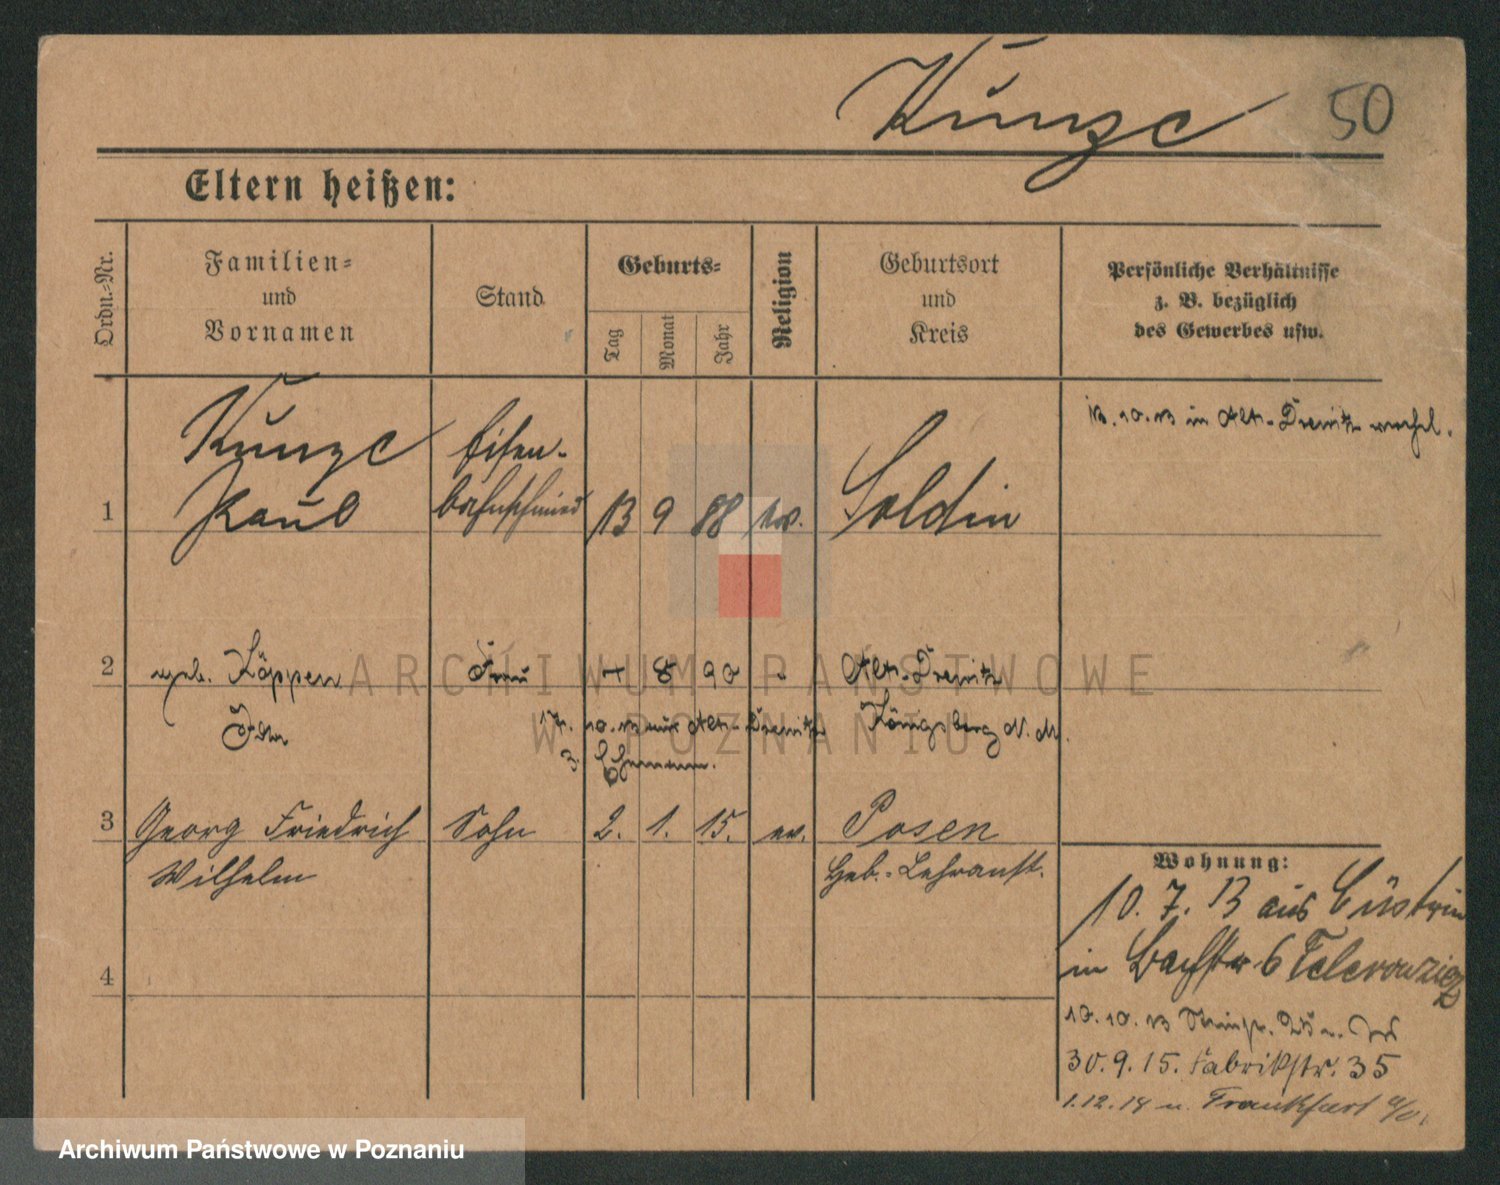 Kunze 50
Eltern heißen:
Ordn.-Nr.
Familien-
und
Vornamen
Stand
Geburts-
Tag
Monat
Jahr
Religion
Geburtsort
und
Kreis
Persönliche Verhältnisse
z. B. bezüglich
des Gewerbes usw.
13.10.13 in Alt-Drewitz verehel.
Kunze Eisen-
1 Paul bahnschmied 13 9 88 ev. Soldin
2 geb. Köppen Frau 7 8 90 Alt-Drewitz
Ida 17. 10. 13 aus Alt-Drewitz Königsberg N. M.
z. Ehemann.
3 Georg Friedrich Sohn 2. 1. 15. ev. Posen
Wilhelm Heb.-Lehranst.
4
Wohnung:
10. 7. 13 aus Cüstrin
in Bachstr 6
10.10.13
30.9.15. Fabrikstr. 35
1.12.18 n. Frankfurt a/O.
ARCHIWUM PAŃSTWOWE
W POZNANIU
Archiwum Państwowe w Poznaniu